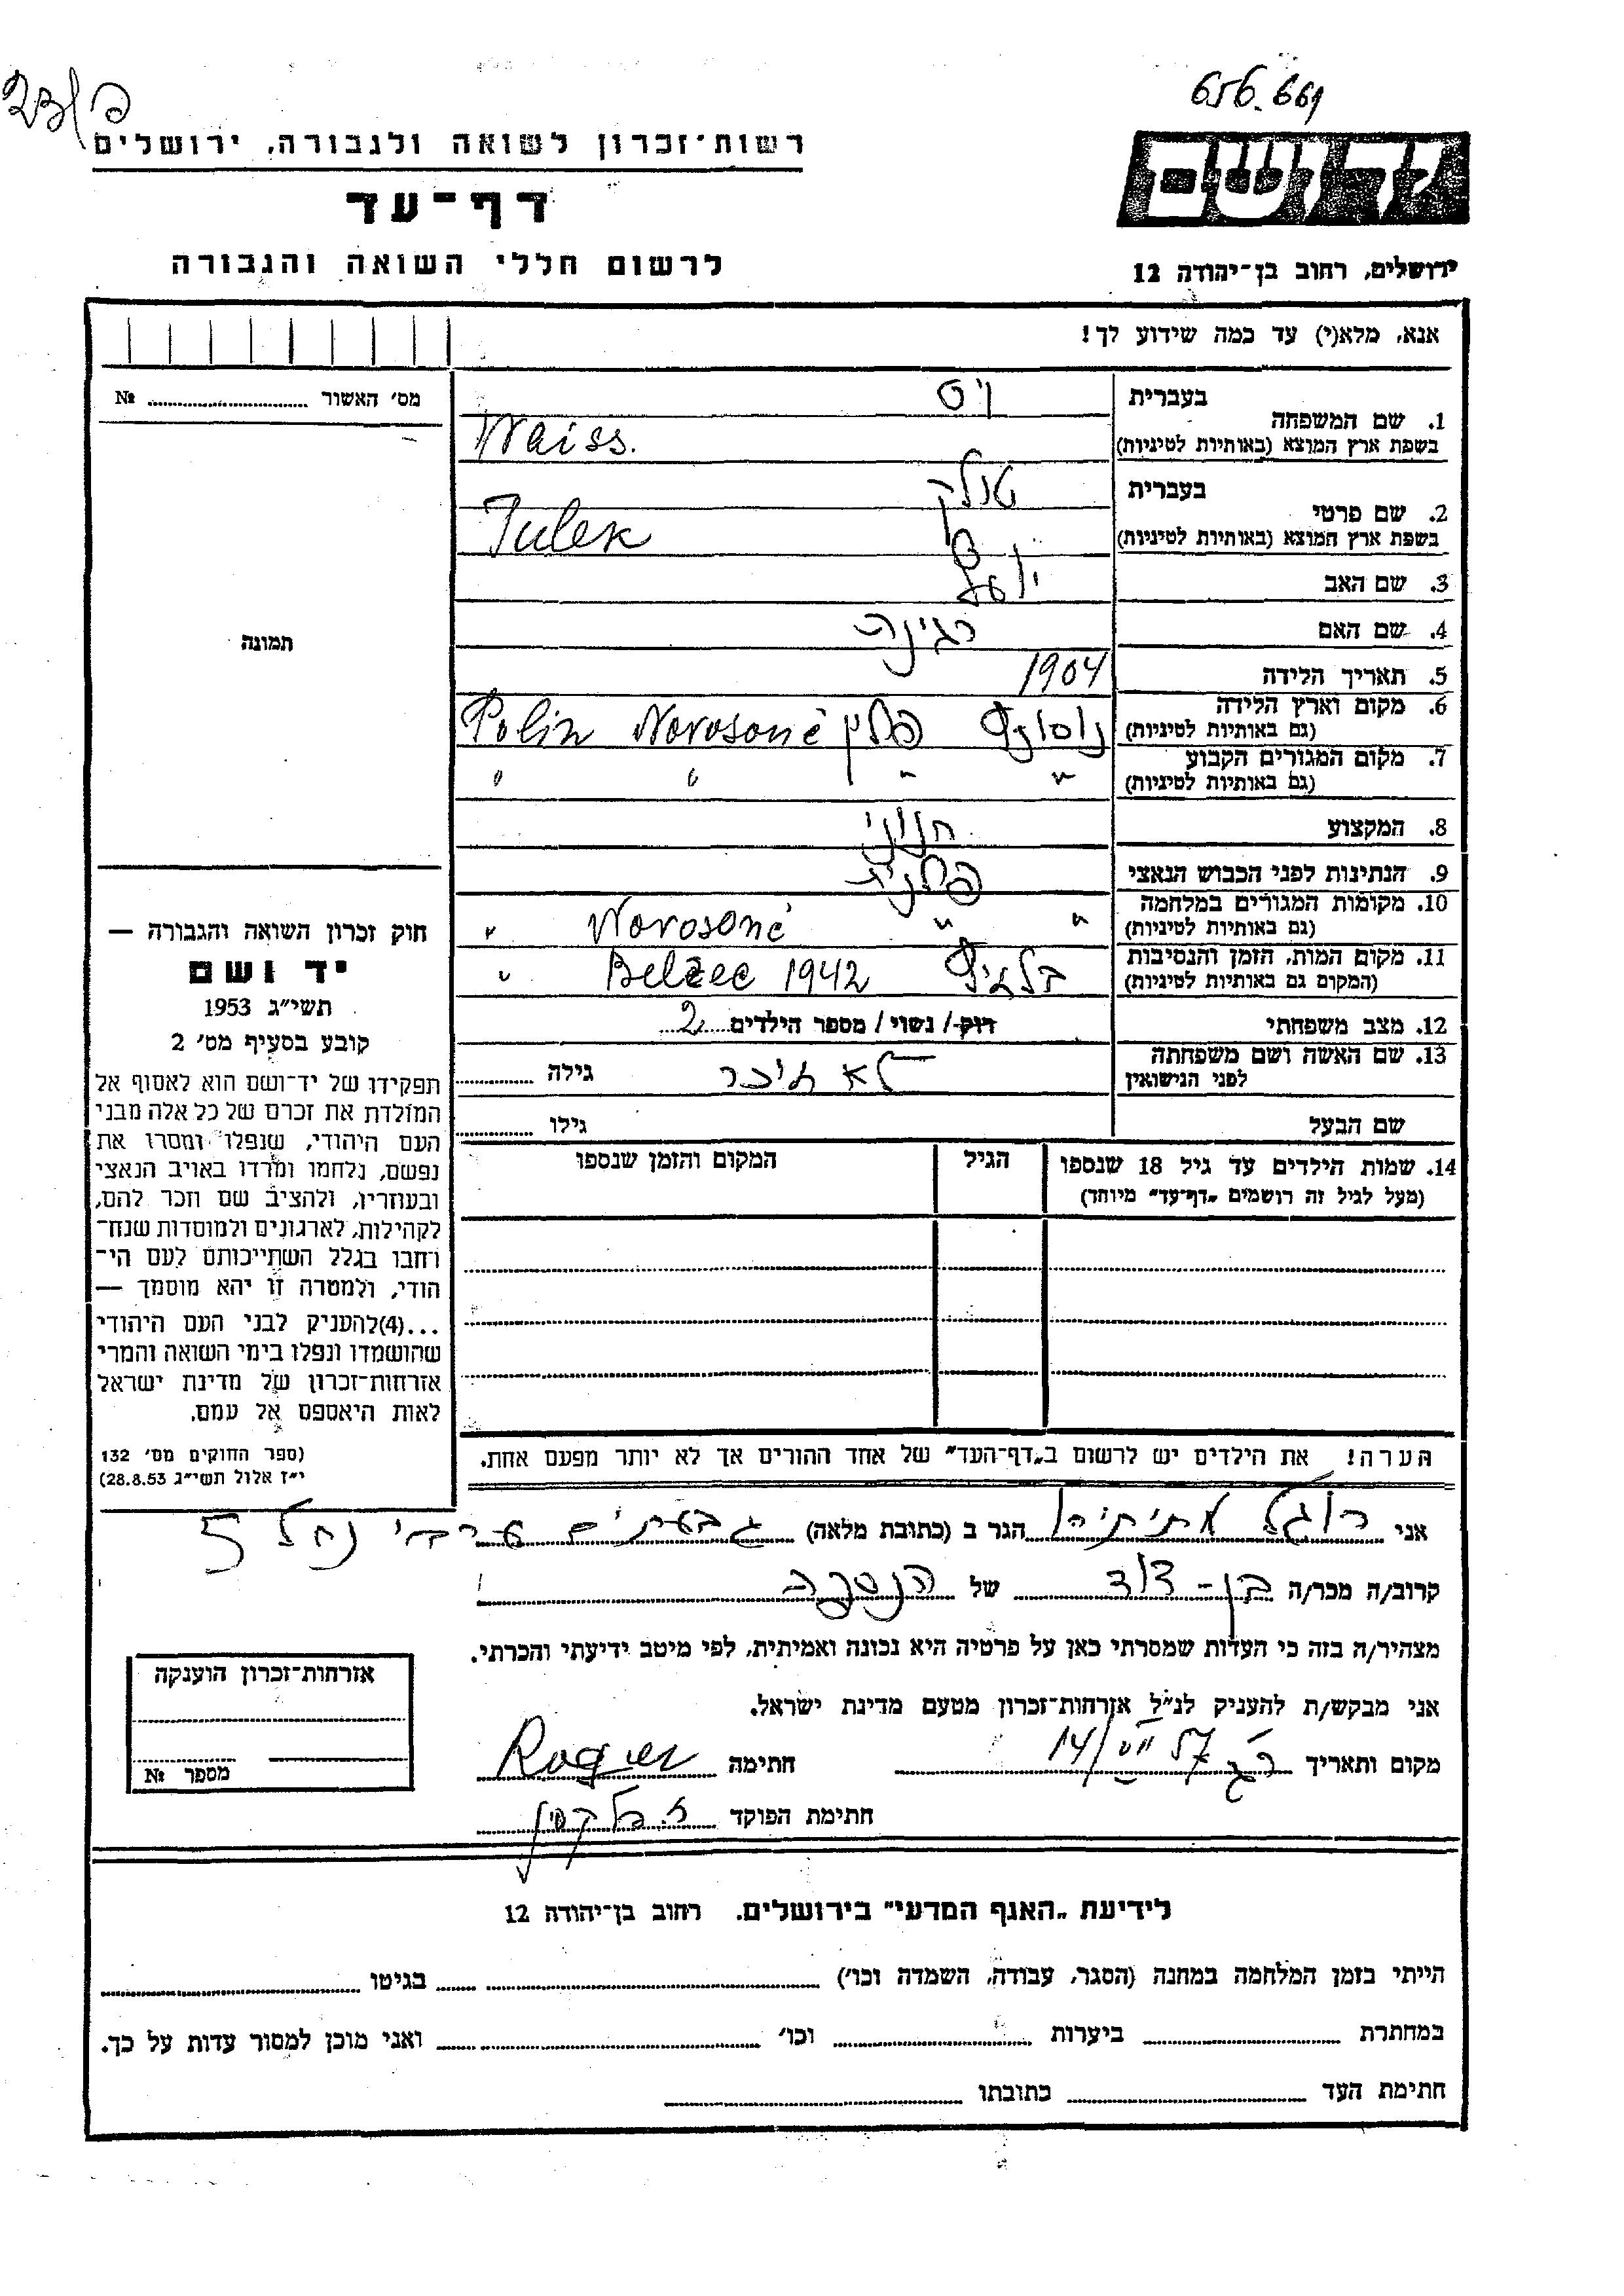 656.661
רשות־זכרון לשואה ולגבורה, ירושלים
יד ושם
דף־עד
לרשום חללי השואה והגבורה
ירושלים, רחוב בן־יהודה 12
אנא, מלא(י) עד כמה שידוע לך!
מס' האשור № ........
1. שם המשפחה בעברית ויס
בשפת ארץ המוצא (באותיות לטיניות) Waiss.
2. שם פרטי בעברית טולק
בשפת ארץ המוצא (באותיות לטיניות) Julek
3. שם האב יוסף
4. שם האם רגינה
5. תאריך הלידה 1904
6. מקום וארץ הלידה (גם באותיות לטיניות) פולין Norosone Polin
7. מקום המגורים הקבוע (גם באותיות לטיניות) " " " "
8. המקצוע חנוני
9. הנתינות לפני הכבוש הנאצי פולנית
10. מקומות המגורים במלחמה (גם באותיות לטיניות) " " Norosone "
11. מקום המות, הזמן והנסיבות (המקום גם באותיות לטיניות) Belzec 1942 "
12. מצב משפחתי רוק/ נשוי/ מספר הילדים 2
13. שם האשה ושם משפחתה לפני הנישואין גילה ........
שם הבעל גילו ........
14. שמות הילדים עד גיל 18 שנספו הגיל המקום והזמן שנספו
(מעל לגיל זה רושמים „דף־עד" מיוחד)
תמונה
חוק זכרון השואה והגבורה —
יד ושם
תשי״ג 1953
קובע בסעיף מס' 2
תפקידו של יד־ושם הוא לאסוף אל
המולדת את זכרם של כל אלה מבני
העם היהודי, שנפלו ומסרו את
נפשם, נלחמו ומרדו באויב הנאצי
ובעוזריו, ולהציב שם וזכר להם,
לקהילות, לארגונים ולמוסדות שנח־
רחבו בגלל השתייכותם לעם הי־
הודי, ולמטרה זו יהא מוסמך —
...(4)להעניק לבני העם היהודי
שהושמדו ונפלו בימי השואה והמרי
אזרחות־זכרון של מדינת ישראל
לאות היאספם אל עמם.
(ספר החוקים מס' 132
י״ז אלול תשי״ג 28.8.53)
הערה! את הילדים יש לרשום ב„דף־העד" של אחד ההורים אך לא יותר מפעם אחת.
אני רוגל מתיתיהו הגר ב (כתובת מלאה) גבעתיים ערבי נחל 5
קרוב/ה מכר/ה בן-דוד של הנספה
מצהיר/ה בזה כי העדות שמסרתי כאן על פרטיה היא נכונה ואמיתית, לפי מיטב ידיעתי והכרתי.
אני מבקש/ת להעניק לנ״ל אזרחות־זכרון מטעם מדינת ישראל.
מקום ותאריך חתימה
חתימת הפוקד
אזרחות־זכרון הוענקה
מספר №
לידיעת „האגף המדעי" בירושלים. רחוב בן־יהודה 12
הייתי בזמן המלחמה במחנה (הסגר, עבודה, השמדה וכו') ........ בגיטו ........
במחתרת ........ ביערות ........ וכו' ........ ואני מוכן למסור עדות על כך.
חתימת העד ........ כתובתו ........